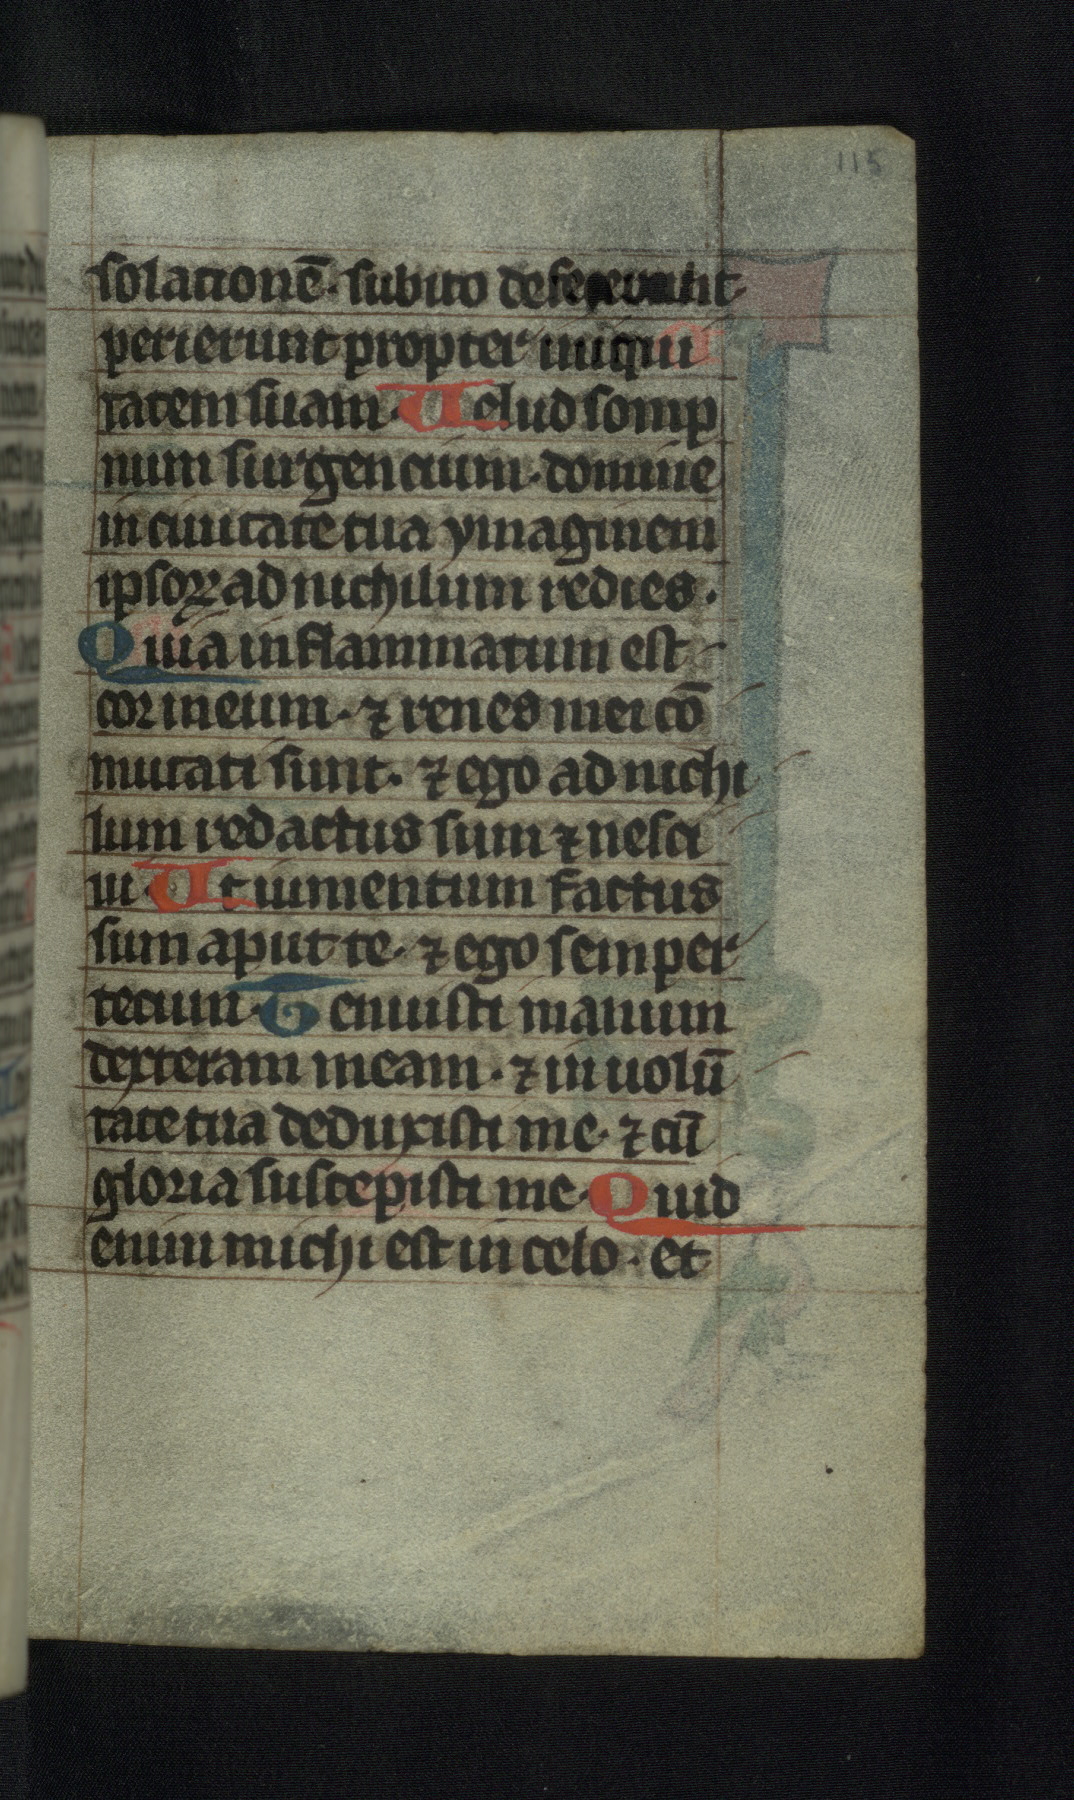 115
solacionē· subito defecerunt
perierunt propter iniqui
tatem suam· Uelud somp
num surgencium· domine
in ciuitate tua ymaginem
ipsoꝝ ad nichilum redies·
Quia inflammatum est
cor meum· ⁊ renes mei cō
mutati sunt· ⁊ ego ad nichi
lum redactus sum ⁊ nesci
ui· Ut iumentum factus
sum aput te· ⁊ ego semper
tecum· Tenuisti manum
dexteram meam· ⁊ in uolū
tate tua deduxisti me· ⁊ cū
gloria suscepisti me· Quid
enim michi est in celo· et